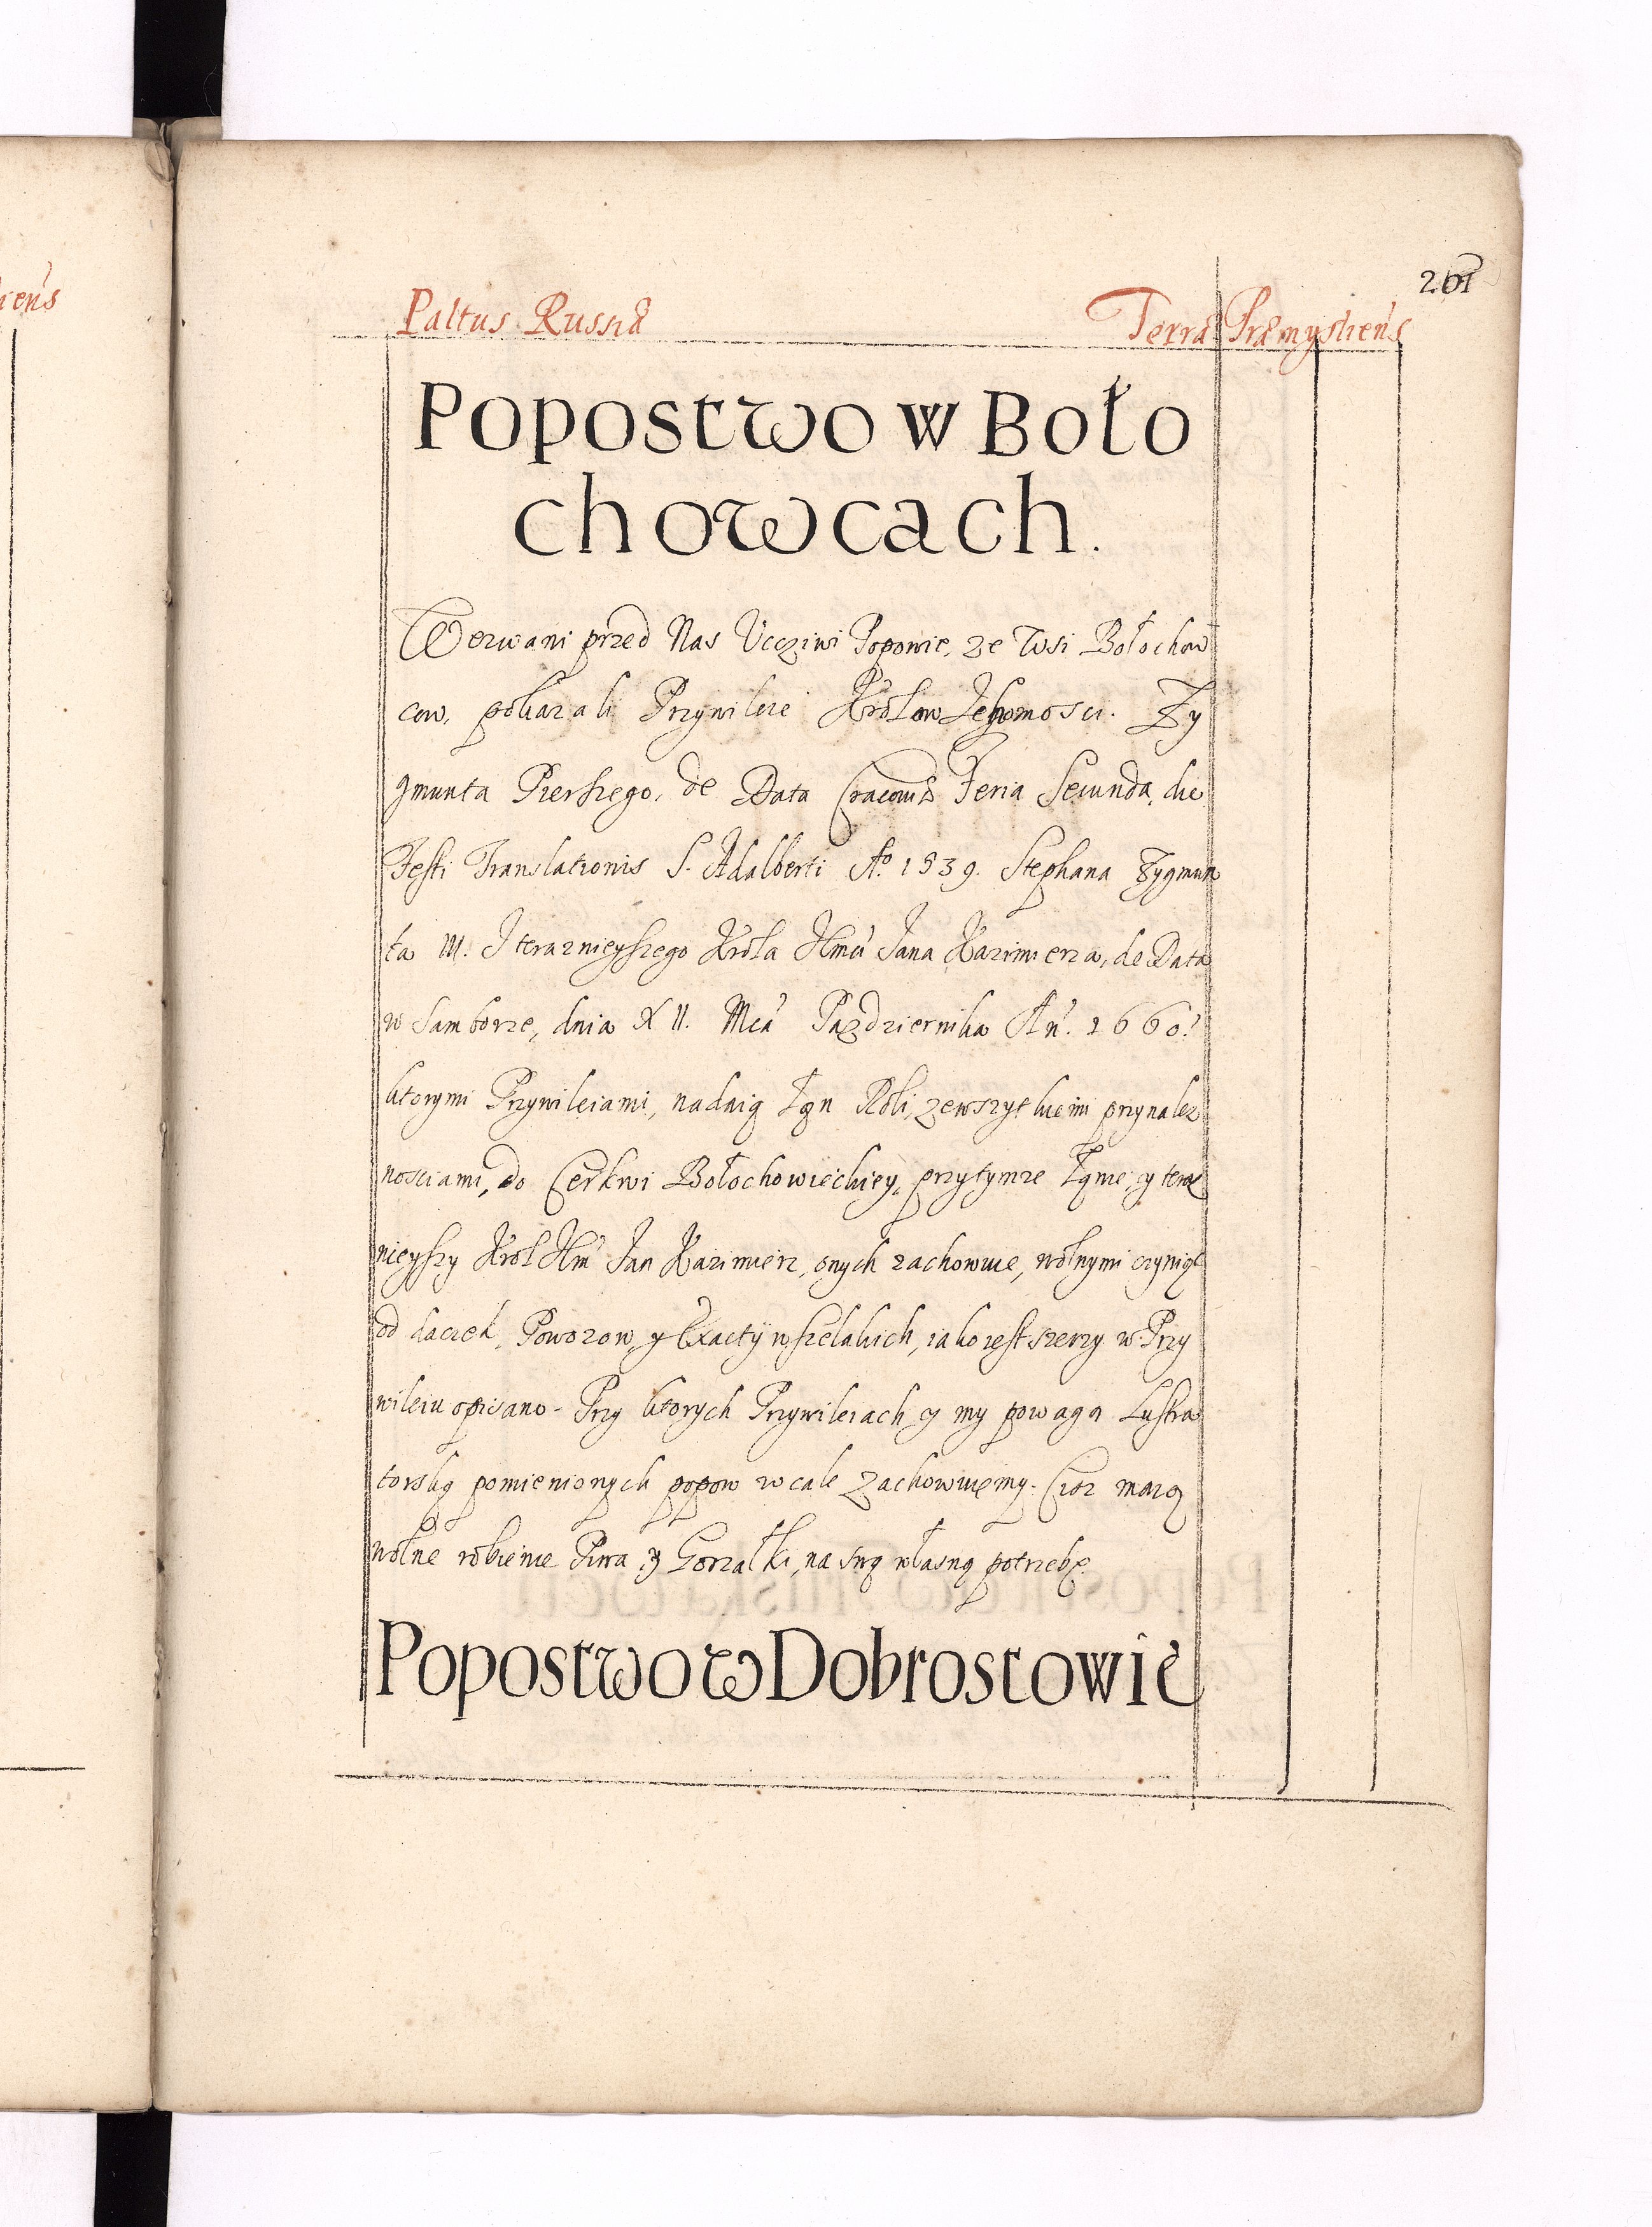 261
Paltus Russiæ Terræ Præmysliens
Popostwo w Boło
chowcach.
Wezwani przed Nas Vccziwi Popowie, ze Wsi Bołochow
cow, pokazali Przywileie Krolow Jchomosci. Zy
gmunta Pierszego, de Data Cracoviæ Feria Secunda, die
Festi Translationis S. Adalberti Aº. 1539. Stephana Zygmun
ta III. I teraznieyszego Krola JKmci Jana Kazimierza, de Data
w Samborze, dnia XII. Mca Pazdziernika An. 1660.
ktorymi Przywileiami, nadaią Łąn Roli, zewszytkiemi przynalez
nosciami, do Cerkwi Bołochowieckiey, przytymze Łąnie, y teraz
nieyszy Krol JKm Jan Kazimierz, onych zachowuie, wolnymi czyniąc
od daczek, Powozow, y Exactÿ wszelakich, iako iest szerzy w Przy
wileiu opisano. Przy ktorych Przywileiach y my powagą Lustra
torską pomienionych popow wcale zachowuięmy. Ciż maią
wolne robienie Piwa y Gorzałki, na swą własną potrzebę.
Popostwo w Dobrostowic